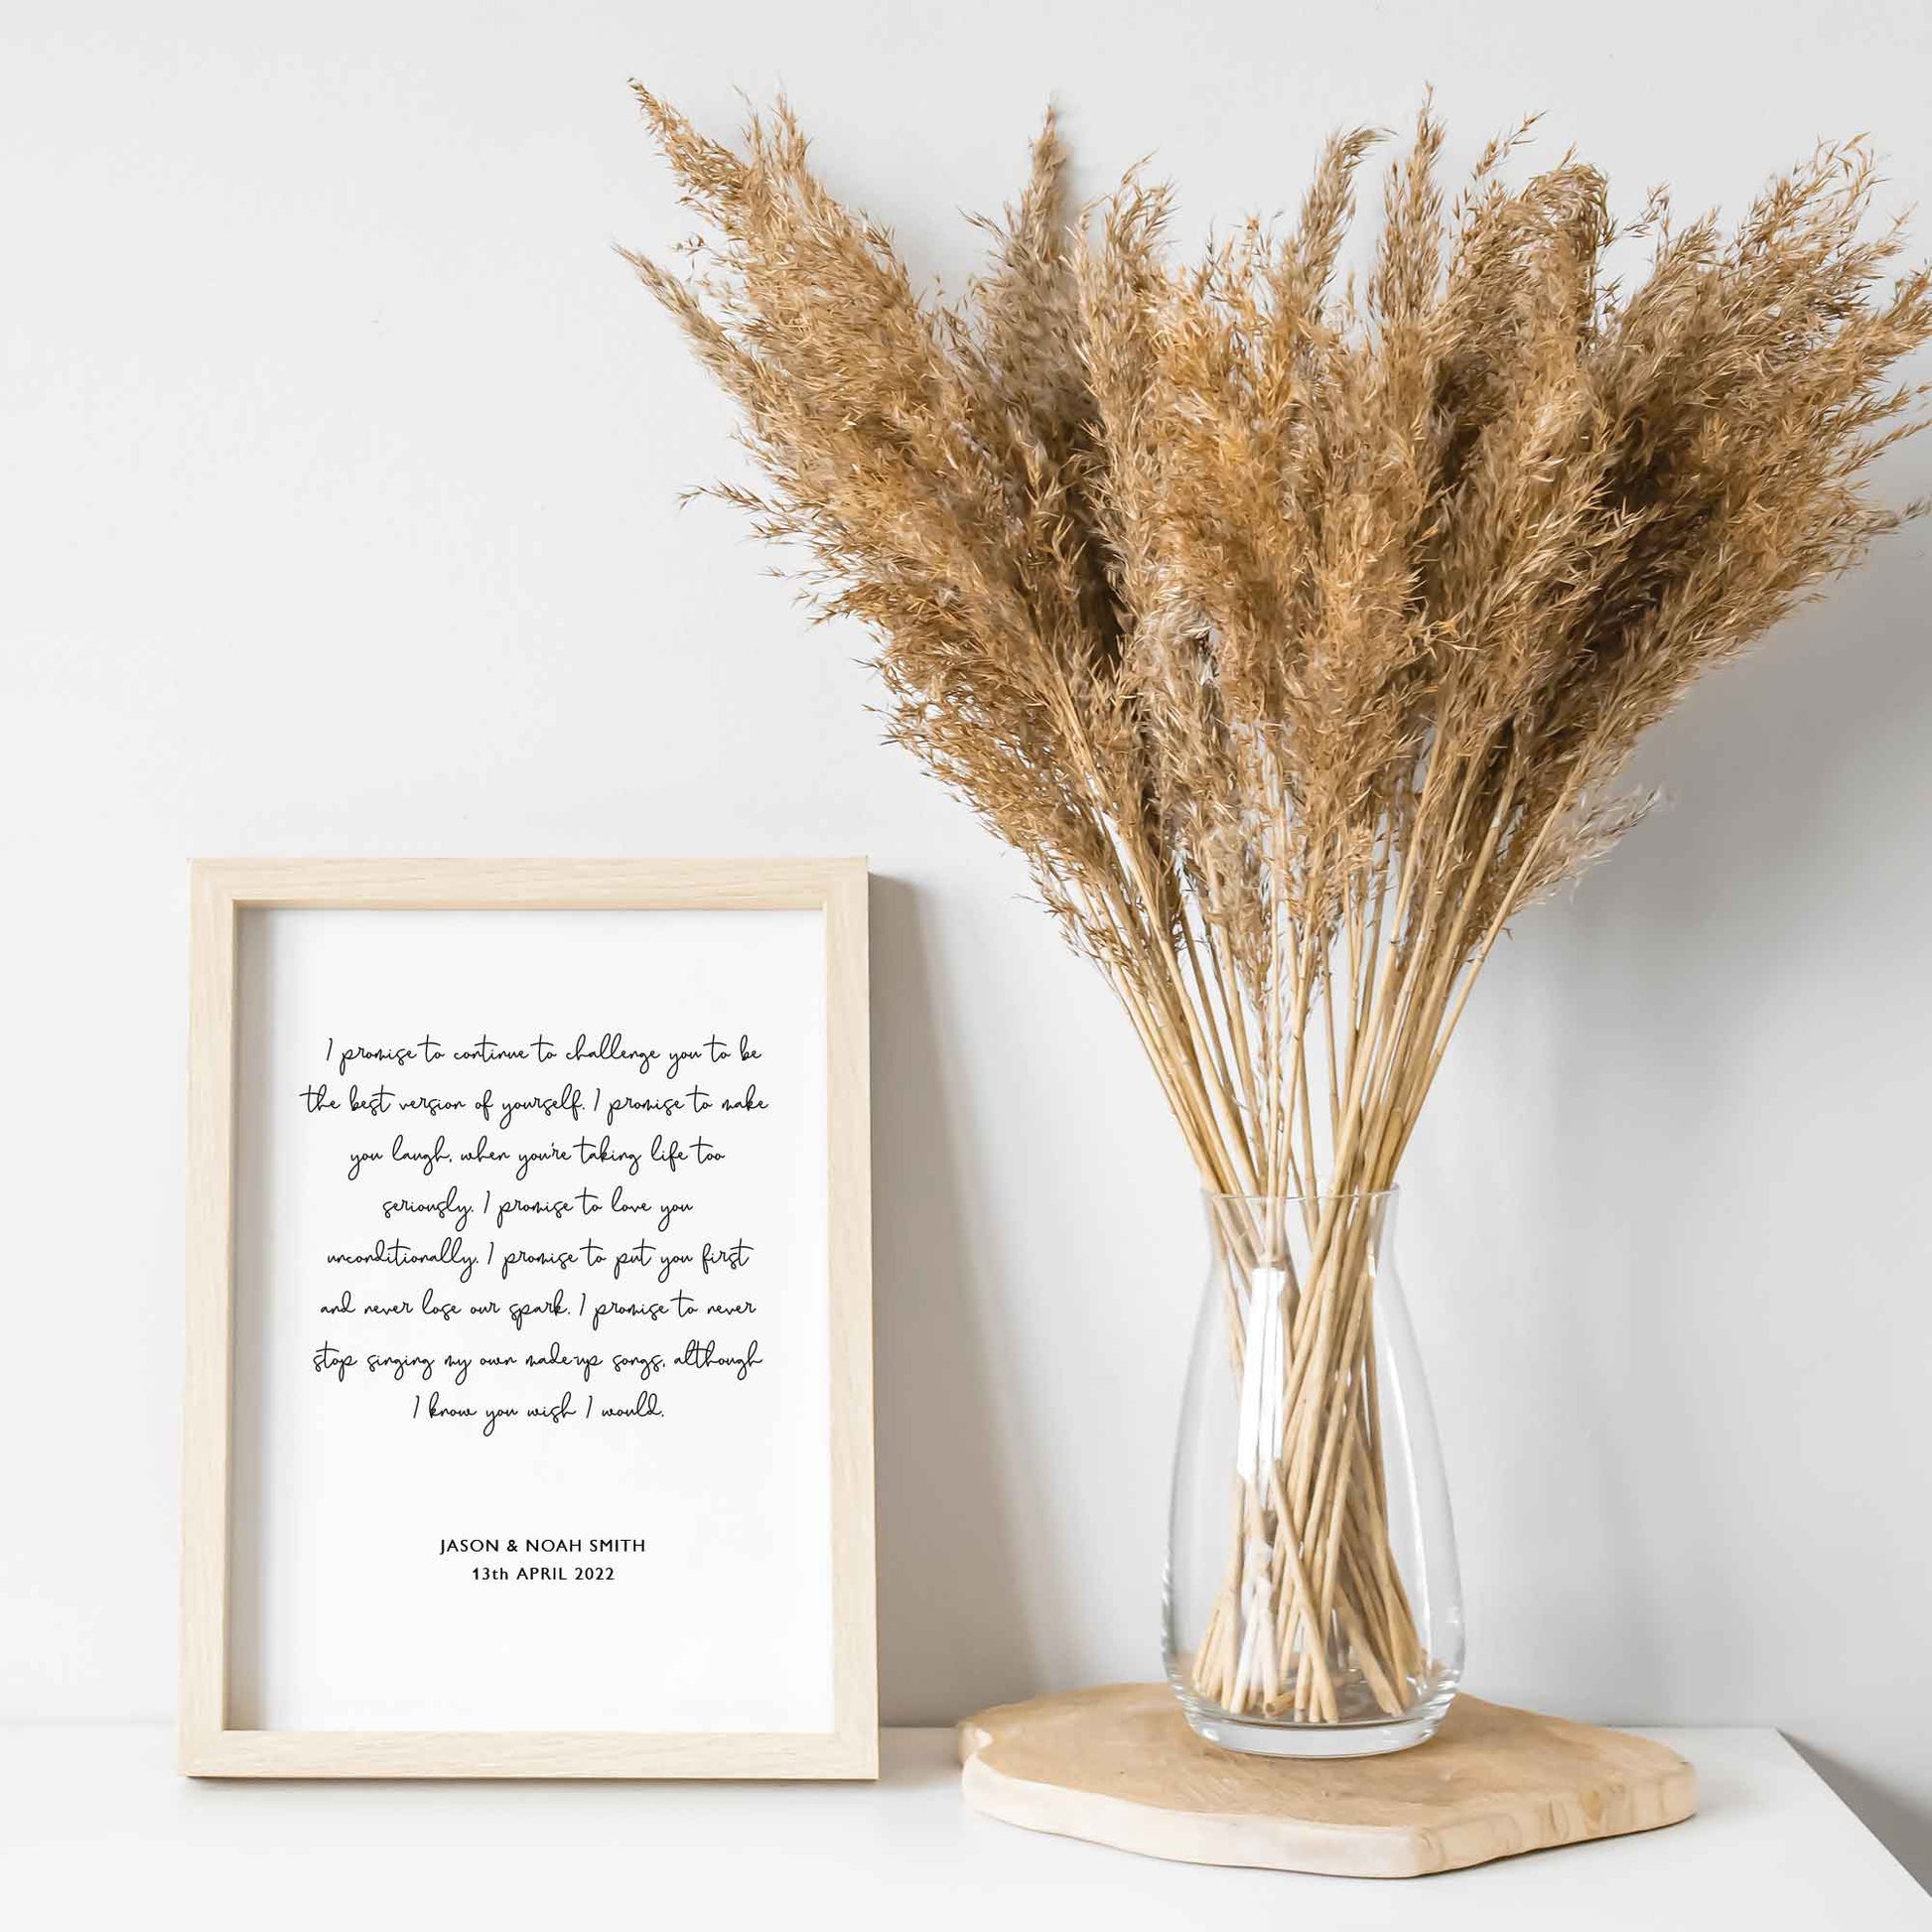 I promise to continue to challenge you to be
the best version of yourself. I promise to make
you laugh, when you're taking life too
seriously. I promise to love you
unconditionally. I promise to put you first
and never lose our spark. I promise to never
stop singing my own made-up songs, although
I know you wish I would.
JASON & NOAH SMITH
13th APRIL 2022